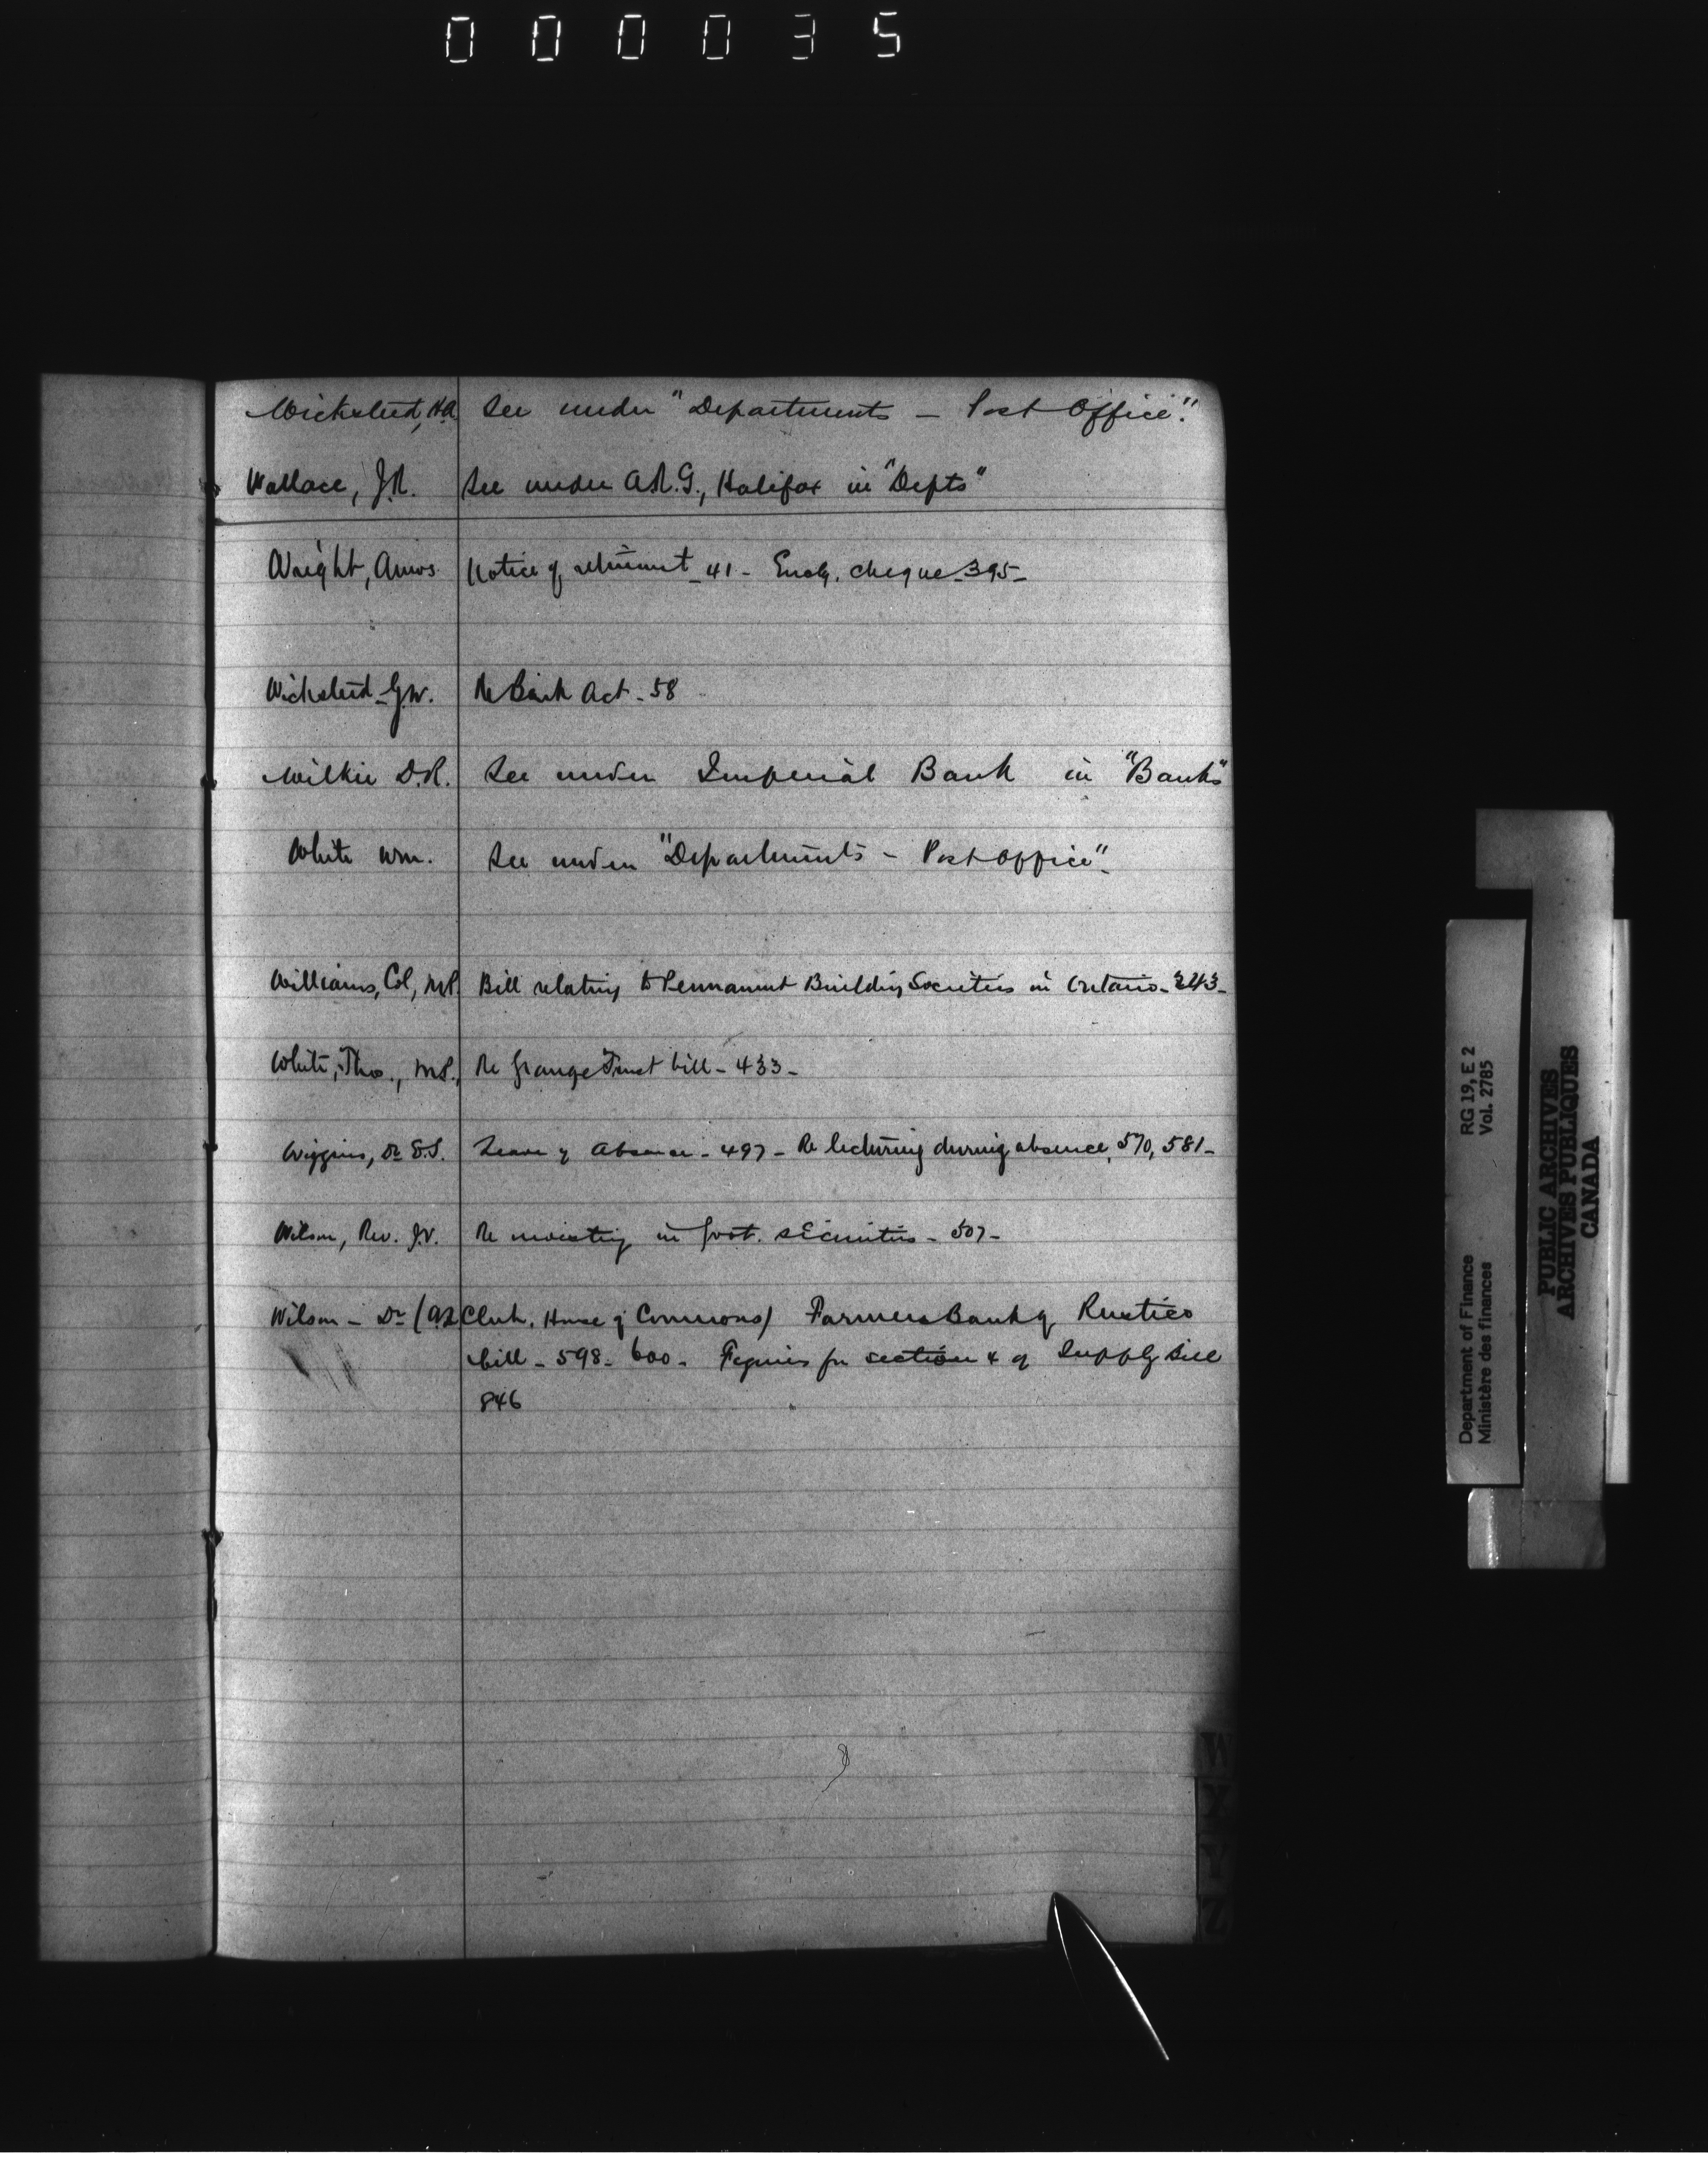 000035
Wicksteed, H.A. See under "Departments — Post Office".
Wallace, J.R. See under A.R.G., Halifax in "Depts"
Wright, Amos Notice of retirement - 41 - Enclg. cheque - 395 -
Wicksteed - G.W. Re Bank Act - 58
Wilkie D.R. See under Imperial Bank in "Banks"
White Wm. See under "Departments - Post Office".
Williams, Col, M.P. Bill relating to Permanent Building Societies in Ontario - 343 -
White, Thos., M.P., Re Grange Trust bill - 433 -
Wiggins, Dr E.S. Leave of Absence - 497 - Re lecturing during absence, 570, 581 -
Wilson, Rev. J.V. Re investing in Govt. securities - 507 -
Wilson - Dr (Clerk, House of Commons) Farmers Bank of Rustico
bill - 598 - 600 - Figures for section 4 of Supply Bill
846
W
X
Y
Z
Department of Finance RG 19, E 2
Ministère des finances Vol. 2785
PUBLIC ARCHIVES
ARCHIVES PUBLIQUES
CANADA